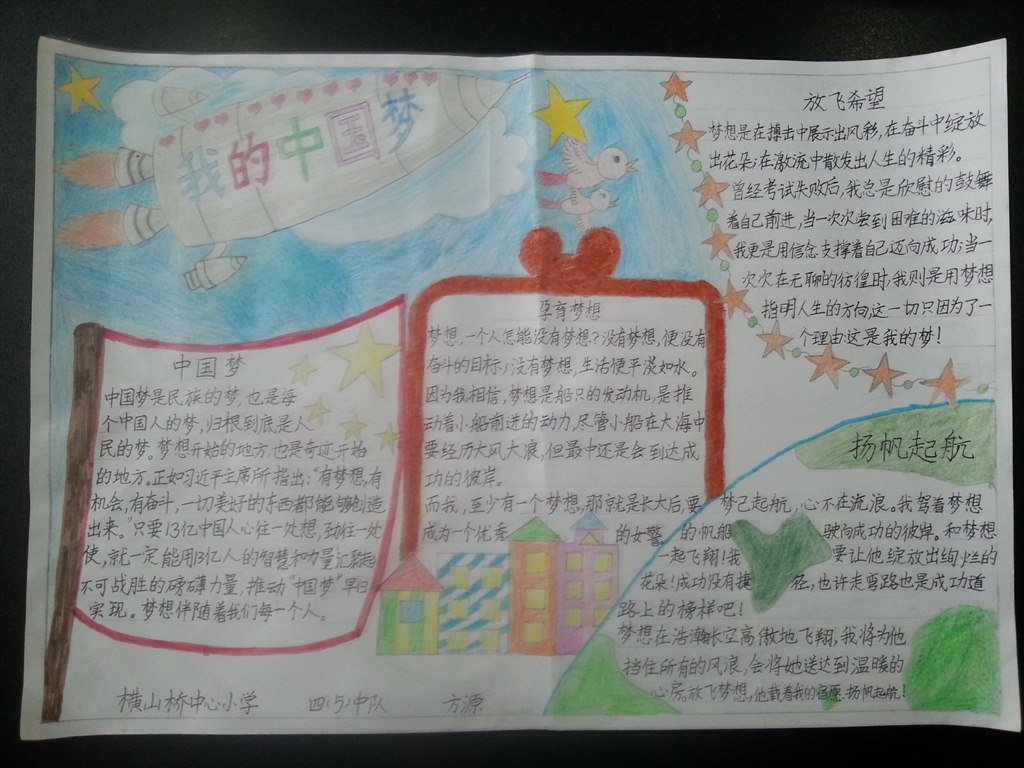 我的中国梦
中国梦
中国梦是民族的梦,也是每
个中国人的梦,归根到底是人
民的梦。梦想开始的地方也是奇迹开始
的地方。正如习近平主席所指出:“有梦想,有
机会,有奋斗,一切美好的东西都能够创造
出来。”只要13亿中国人心往一处想,劲往一处
使,就一定能用13亿人的智慧和力量汇聚起
不可战胜的磅礴力量,推动“中国梦”早日
实现。梦想伴随着我们每一个人。
孕育梦想
梦想,一个人怎能没有梦想?没有梦想,便没有
奋斗的目标;没有梦想,生活便平淡如水。
因为我相信,梦想是船只的发动机,是推
动着小船前进的动力,尽管小船在大海中
要经历大风大浪,但最中还是会到达成
功的彼岸。
而我,至少有一个梦想,那就是长大后,要
成为一个优秀的女警
放飞希望
梦想是在搏击中展示出风彩,在奋斗中绽放
出花朵;在激流中散发出人生的精彩。
曾经考试失败后,我总是欣慰的鼓舞
着自己前进,当一次次尝到困难的滋味时,
我更是用信念支撑着自己迈向成功;当一
次次在无聊的彷徨时,我则是用梦想
指明人生的方向,这一切只因为了一
个理由这是我的梦!
扬帆起航
梦已起航,心不在流浪。我驾着梦想
的帆船驶向成功的彼岸。和梦想
一起飞翔!我要让他绽放出绚烂的
花朵!成功没有捷径,也许走弯路也是成功道
路上的榜样吧!
梦想在浩瀚长空高傲地飞翔,我将为他
挡住所有的风浪,会将她送达到温暖的
心房,放飞梦想,他载着我的宿愿扬帆起航!
横山桥中心小学 四(5)中队 方源